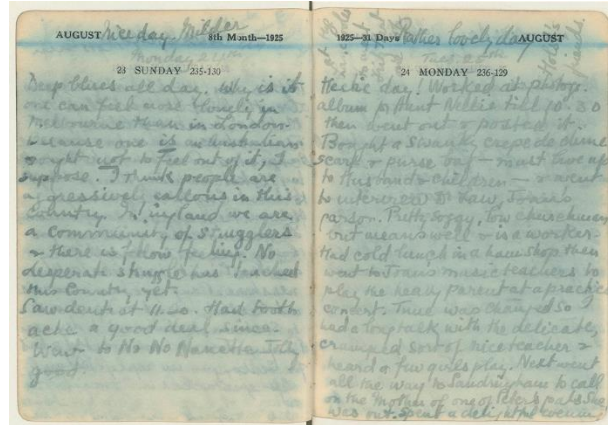 AUGUST Nice day. Milder 8th Month—1925
Monday 24th
23 SUNDAY 235-130
Deep blues all day. Why is it
one can feel more lonely in
Melbourne than in London.
Because one is an Australian
& ought not to feel out of it, I
suppose. I think people are
aggressively callous in this
country. In England we are
a community of strugglers
& there is fellow feeling. No
desperate struggle has reached
this country yet.
Saw dentist at 11.20. Had tooth
ache a good deal since.
Went to No No Nanette. Jolly
good
1925—31 Days Rather lovely day AUGUST
Tues. 25th
24 MONDAY 236-129
Hectic day! Worked at photog.
album for Aunt Nellie till 10.30
then went out & posted it.
Bought a swanky crepe de chine
scarf & purse bag — must live up
to Husband & children — & went
to interview Law, Joan's
parson. Pretty soggy, low churchman
but means well & is a worker.
Had cold lunch in a ham shop then
went to Joan's music teachers to
play the heavy parent at a practice
concert. Time was changed so
had a long talk with the delicate,
cramped sort of nice teacher &
heard a few girls play. Next went
all the way to Sandringham to call
on the mother of one of Peter's pals. She
was out. Spent a delightful evening